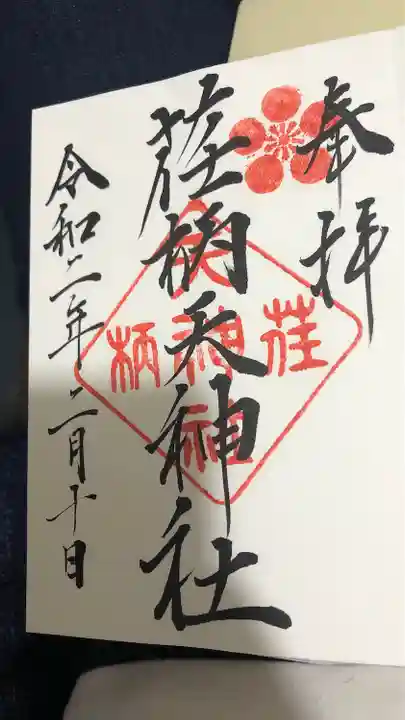 奉拝
荏柄天神社
荏柄天神社
令和二年二月十日